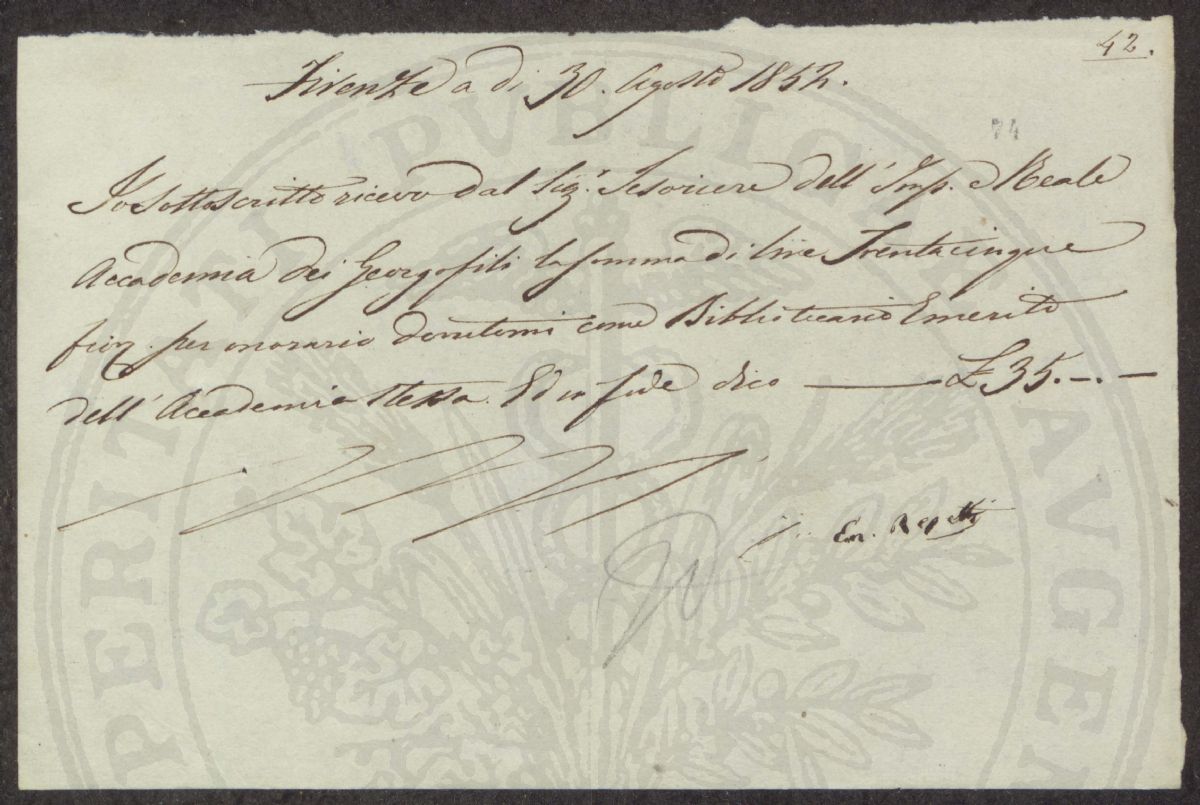 42.
Firenze a di 30. Agosto 1852.
74
Io Sottoscritto ricevo dal Sig.r Tesoriere dell' Imp. e Reale
Accademia dei Georgofili la somma di lire Trentacinque
fior. per onorario donatomi come Bibliotecario Emerito
dell' Accademia stessa Ed in fede dico — £ 35.-.-
Em. Repetti
PERITATI PUBLICAE AUGEN